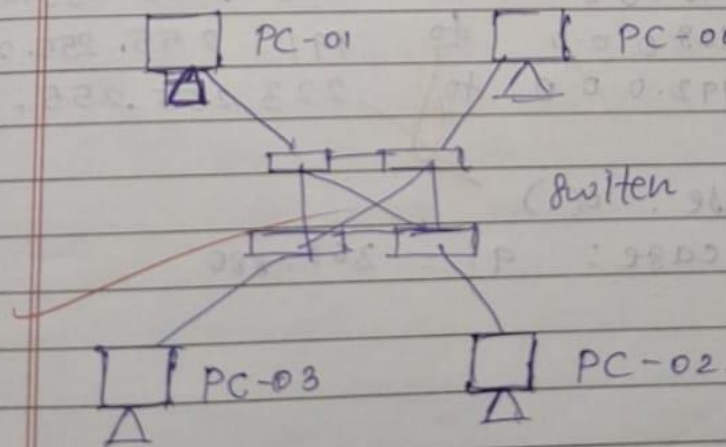 PC-01
PC-0
Switch
PC-03
PC-02